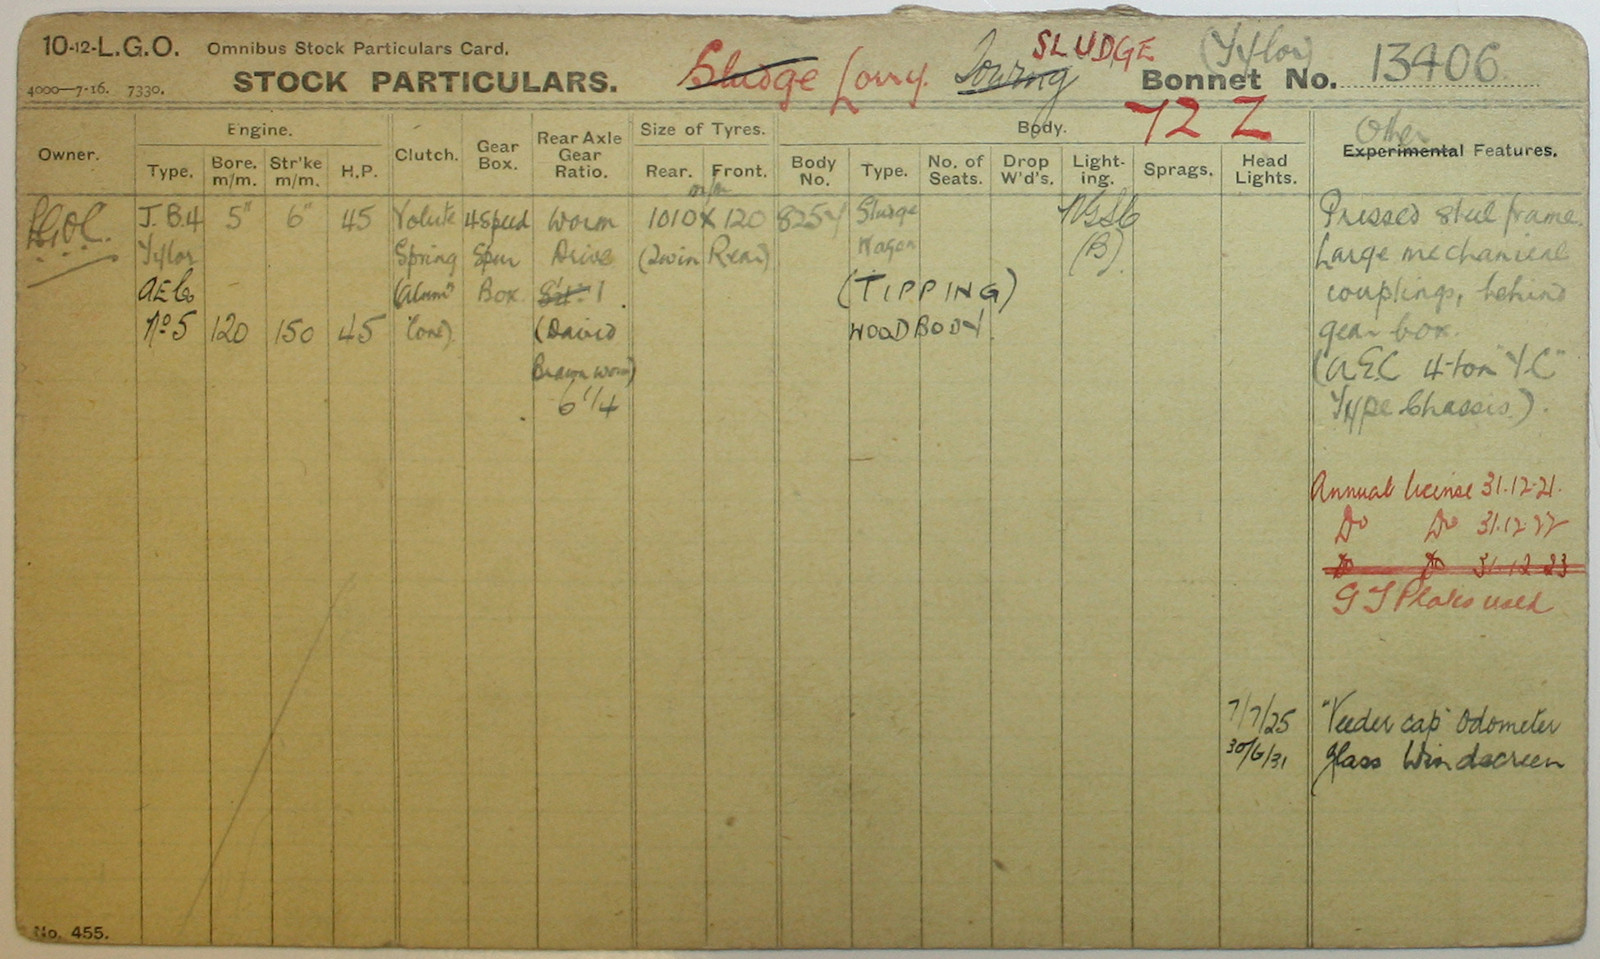 10-12-L.G.O. Omnibus Stock Particulars Card.
4000—7·16. 7330.
STOCK PARTICULARS.
Sludge Lorry. Touring SLUDGE (Tylor)
Bonnet No. 13406
72 Z
Owner. Engine. Clutch. Gear Box. Rear Axle Gear Ratio. Size of Tyres. Body. Other Experimental Features.
Type. Bore. m/m. Str'ke m/m. H.P. Rear. Front. Body No. Type. No. of Seats. Drop W'd's. Light-ing. Sprags. Head Lights.
m/m
L.G.O.C. J.B.4 5" 6" 45 Volute 4 Speed Worm 1010 X 120 Sludge Pressed steel frame.
Tylor Spring Spur Drive (Twin Rear) Wagon (B) Large mechanical
AEC (Alum" Box 1 (TIPPING) couplings, behind
No 5 120 150 45 Cone). (David WOODBODY gear box.
Brown worm) (A.E.C 4-ton "Y.C"
6 1/4 Type Chassis).
Annual License 31.12.21.
Do Do 31.12.22
Do Do 31.12.23
G T Plates used
7/7/25 "Veeder cap" Odometer
30/6/31 Glass Windscreen
No. 455.